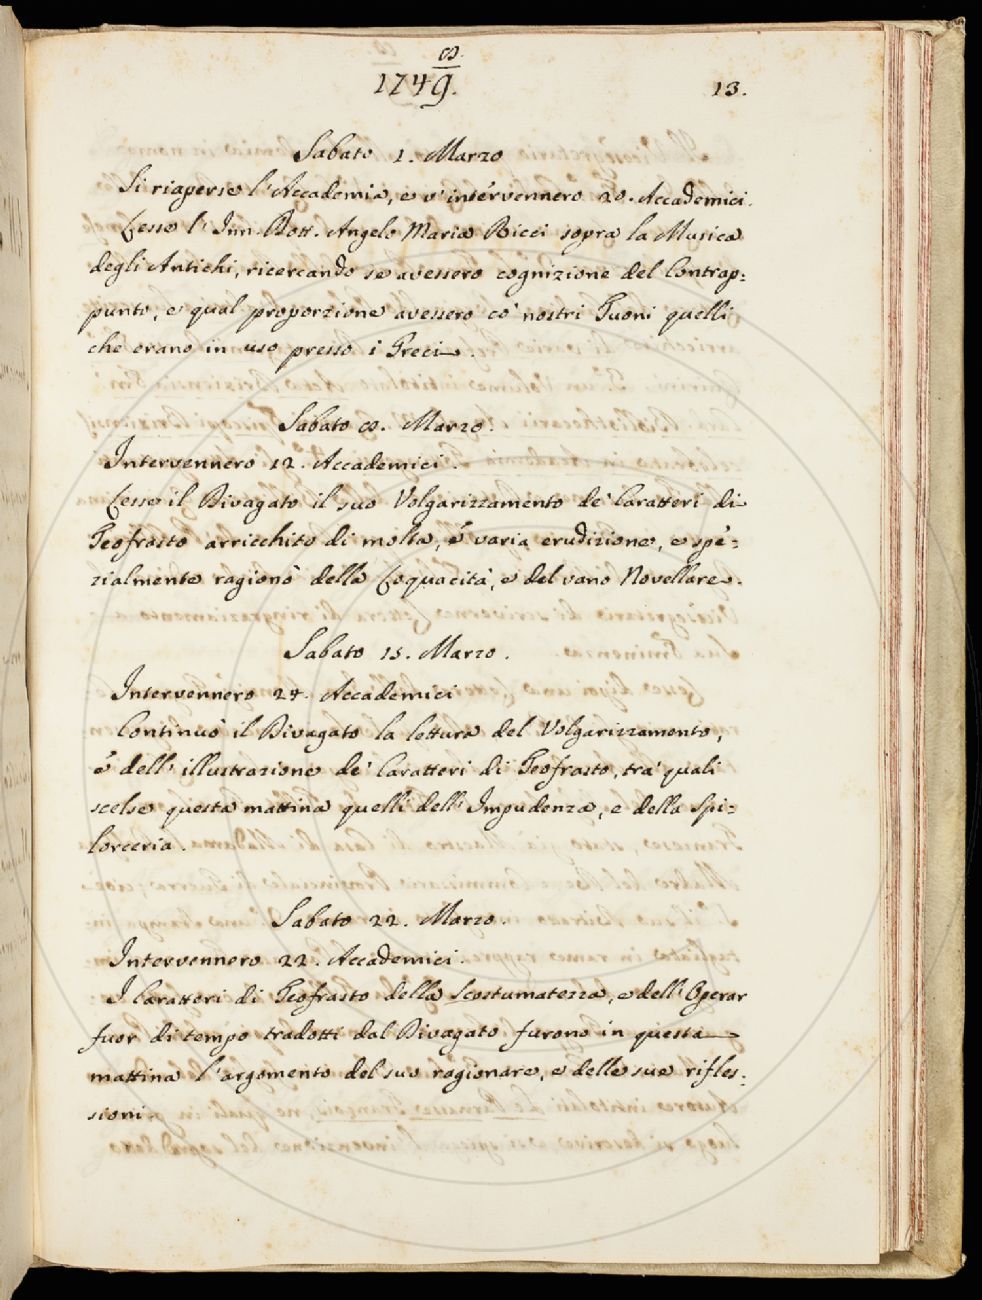 8.
1749.
13.
Sabato 1. Marzo
Si riaperse l'Accademia, e v'intervennero 20. Accademici.
Lesse l'Inn. Dott. Angelo Maria Ricci sopra la Musica
degli Antichi, ricercando se avessero cognizione del Contrap:
punto, e qual proporzione avessero co' nostri Tuoni quelli
che erano in uso presso i Greci.
Sabato 8. Marzo.
Intervennero 12. Accademici.
Lesse il Divagato il suo Volgarizzamento de' Caratteri di
Teofrasto arricchito di molta, é varia erudizione, e spe:
zialmente ragionò della Loquacità, e del vano Novellare.
Sabato 15. Marzo.
Intervennero 24. Accademici
Continuò il Divagato la lettura del Volgarizzamento,
é dell'illustrazione de' Caratteri di Teofrasto, tra' quali
scelse questa mattina quelli dell'Impudenza, e della Spi:
lorceria.
Sabato 22. Marzo.
Intervennero 22. Accademici.
I Caratteri di Teofrasto della Scostumatezza, e dell'Operar
fuor di tempo tradotti dal Divagato furono in questa
mattina l'argomento del suo ragionare, e delle sue rifles:
sioni.